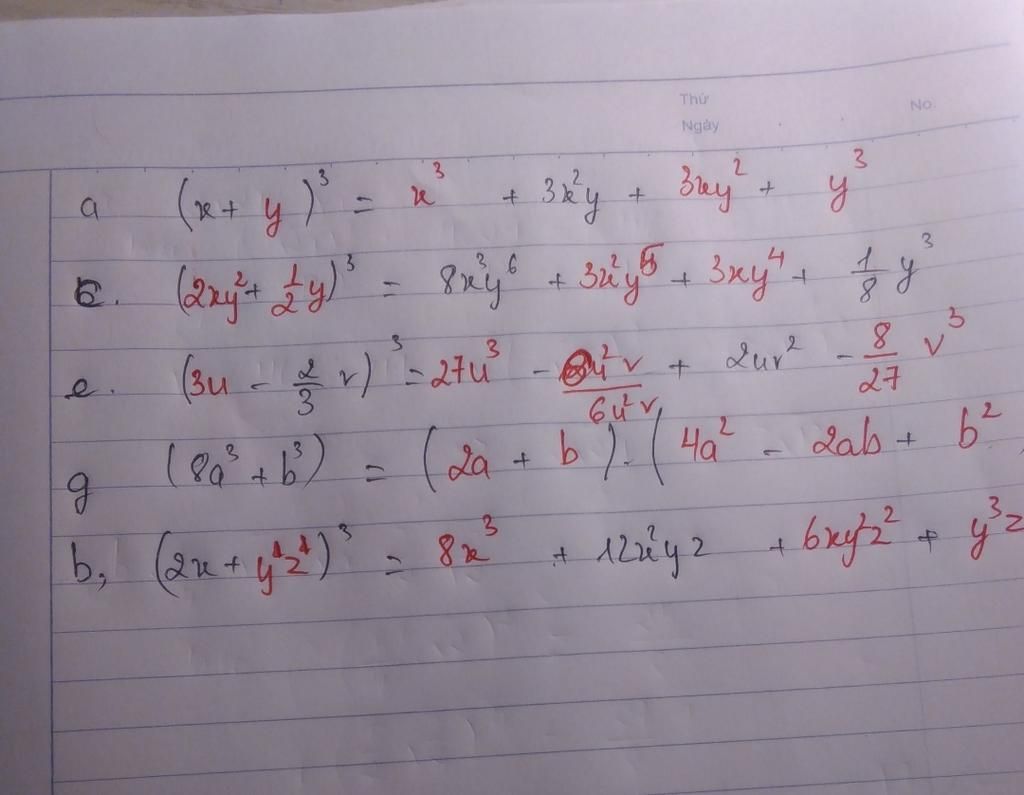 Thứ
No.
Ngày
a (x + y)³ = x³ + 3x²y + 3xy² + y³
c. (2xy² + 1/2 y)³ = 8x³y⁶ + 3x²y⁵ + 3xy⁴ + 1/8 y³
e. (3u - 2/3 v)³ = 27u³ - 6u²v + 2uv² - 8/27 v³
g (8a³ + b³) = (2a + b).(4a² - 2ab + b²
b, (2x + y¹z¹)³ = 8x³ + 12x²yz + 6xy²z² + y³z